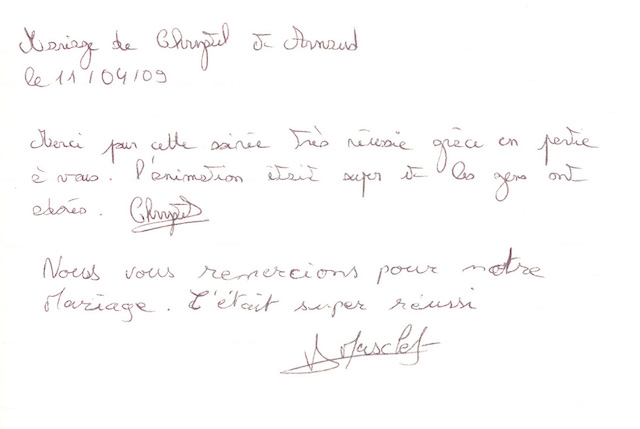 Mariage de Chrystel et Arnaud
le 11/04/09
Merci pour cette soirée très réussie grâce en partie
à vous. l'animation était super et les gens ont
adorés. Chrystel
Nous vous remercions pour notre
Mariage. C'était super réussi
Masclef